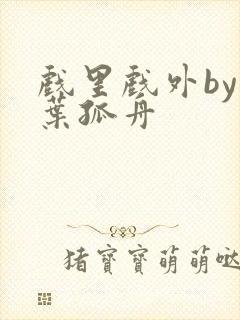 戏里戏外by
葉孤舟
猪寶寶萌萌哒